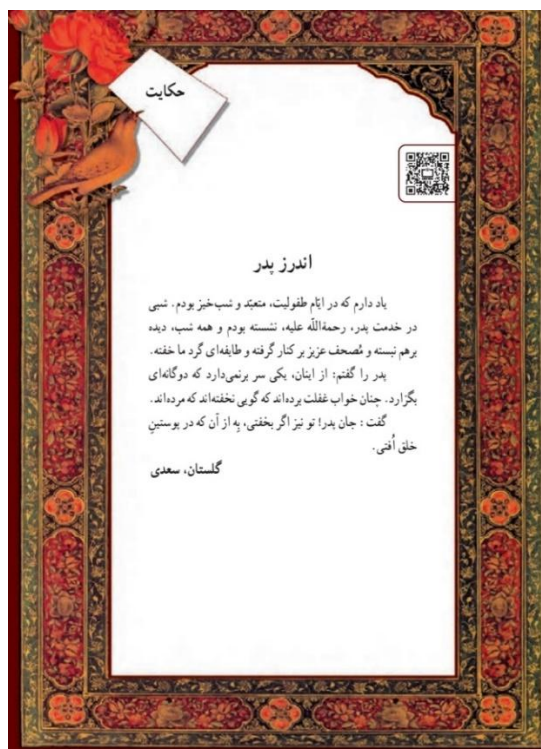 حکایت
اندرز پدر
یاد دارم که در ایّام طفولیت، متعبّد و شب‌خیز بودم. شبی
در خدمت پدر، رحمةاللّه علیه، نشسته بودم و همه شب، دیده
برهم نبسته و مُصحف عزیز بر کنار گرفته و طایفه‌ای گرد ما خفته.
پدر را گفتم: از اینان، یکی سر برنمی‌دارد که دوگانه‌ای
بگزارد. چنان خواب غفلت برده‌اند که گویی نخفته‌اند که مرده‌اند.
گفت : جان پدر! تو نیز اگر بخفتی، بِه از آن که در پوستینِ
خلق اُفتی.
گلستان، سعدی